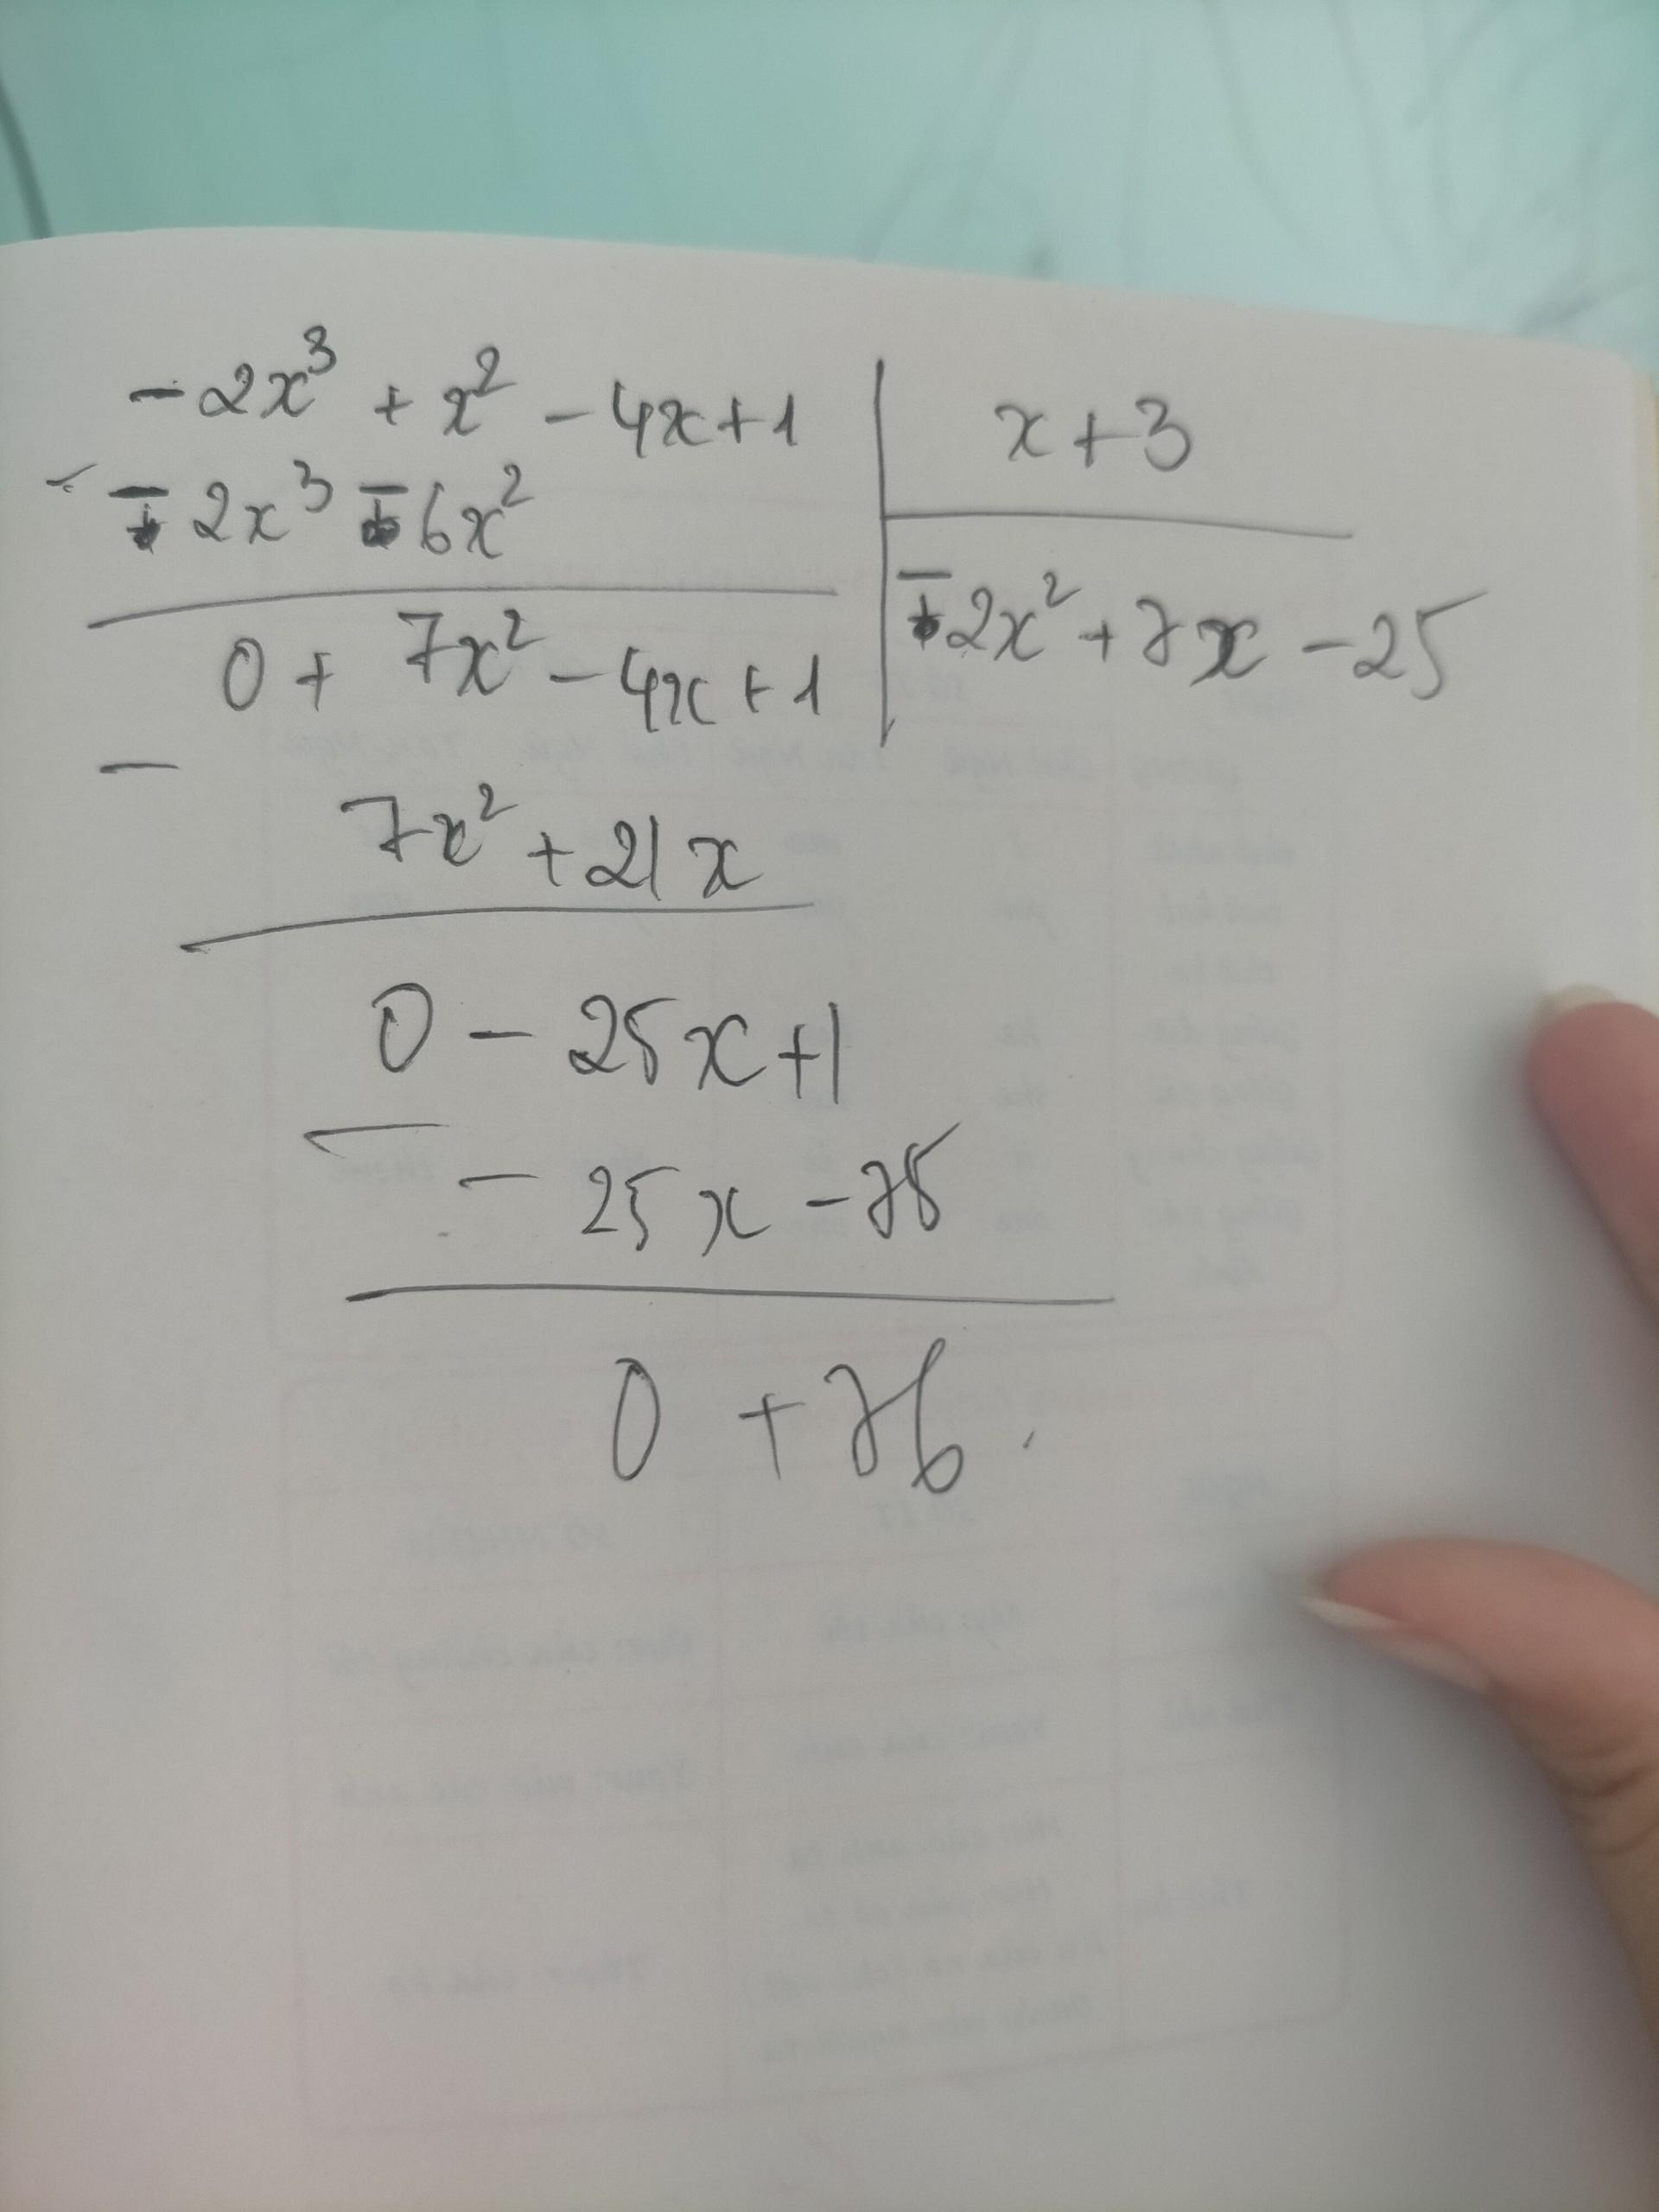 -2x³ + x² - 4x + 1 | x + 3
- -2x³ -6x² | -2x² + 7x - 25
0 + 7x² - 4x + 1
-
7x² + 21x
0 - 25x + 1
-
- 25x - 75
0 + 76.